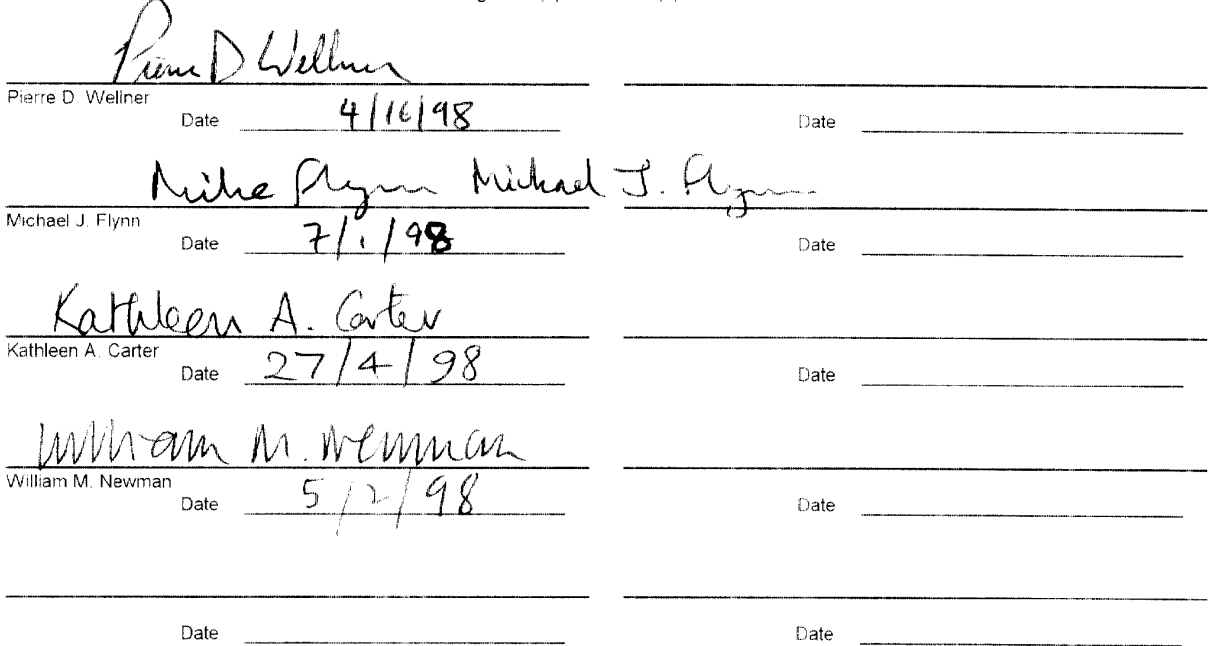 Pierre D Wellner
Pierre D. Wellner
Date 4/16/98 Date
Mike Flynn Michael J. Flynn
Michael J. Flynn
Date 7/1/98 Date
Kathleen A. Carter
Kathleen A. Carter
Date 27/4/98 Date
William M. Newman
William M. Newman
Date 5/2/98 Date
Date Date